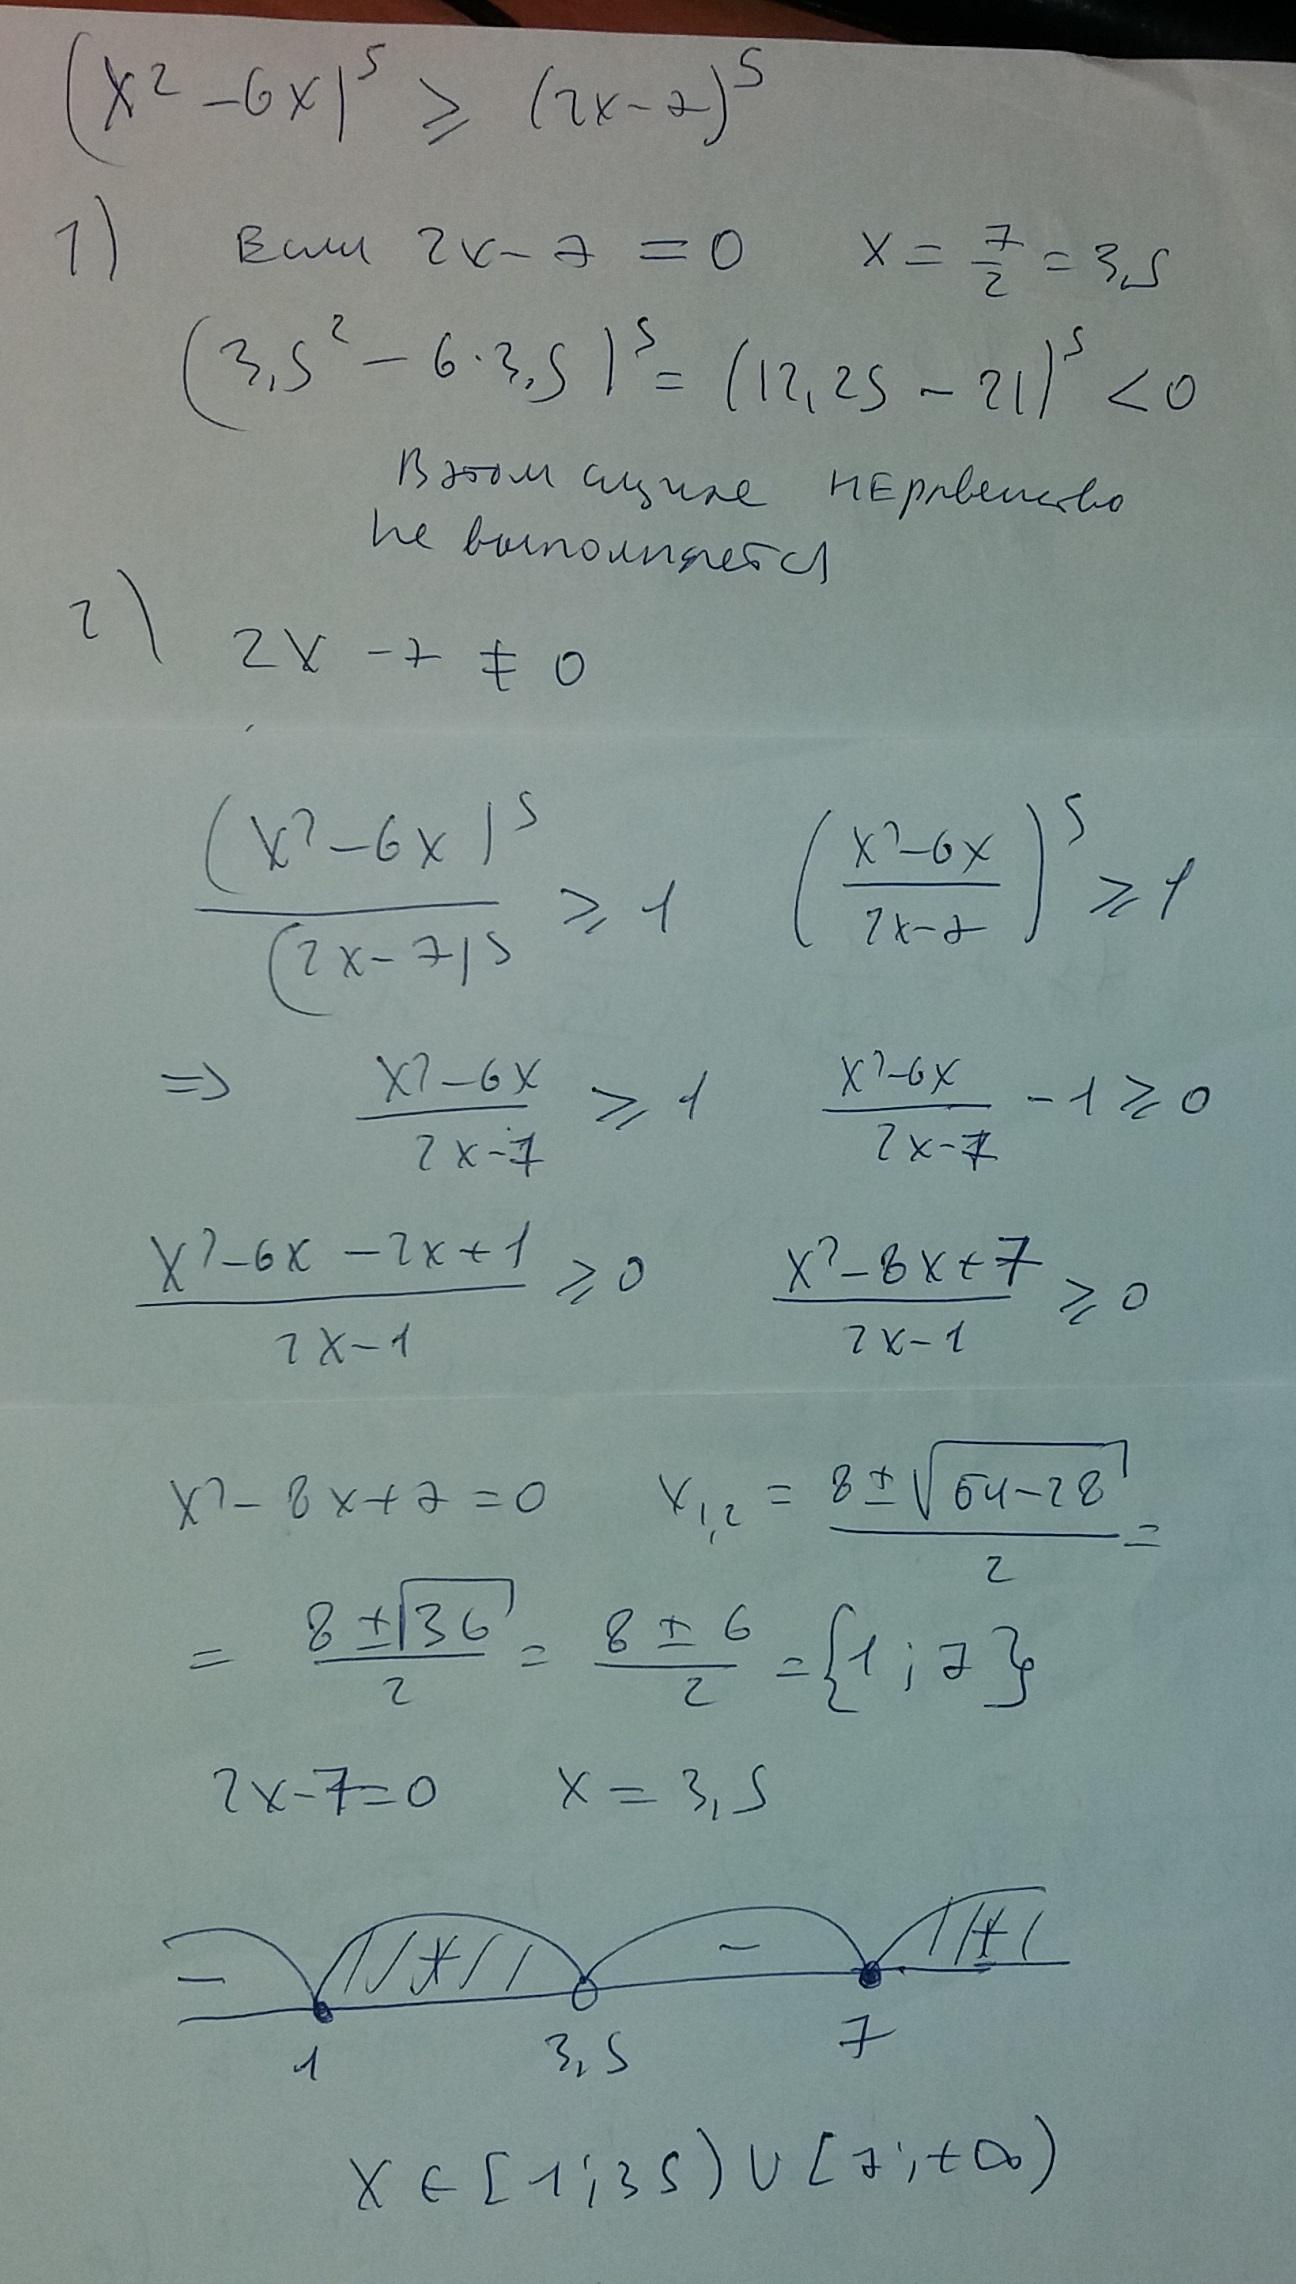 (x² - 6x)⁵ ≥ (2x-7)⁵
1) Если 2x-7 = 0 x = 7/2 = 3,5
(3,5² - 6·3,5)⁵ = (12,25 - 21)⁵ < 0
В этом случае неравенство
не выполняется
2) 2x - 7 ≠ 0
(x²-6x)⁵/(2x-7)⁵ ≥ 1 ((x²-6x)/(2x-7))⁵ ≥ 1
=> (x²-6x)/(2x-7) ≥ 1 (x²-6x)/(2x-7) - 1 ≥ 0
(x²-6x-2x+1)/(2x-1) ≥ 0 (x²-8x+7)/(2x-1) ≥ 0
x²-8x+7=0 x₁,₂ = (8±√(64-28))/2 =
= (8±√36)/2 = (8±6)/2 = {1;7}
2x-7=0 x = 3,5
- + - +
1 3,5 7
x ∈ [1;3 5) ∪ [7;+∞)